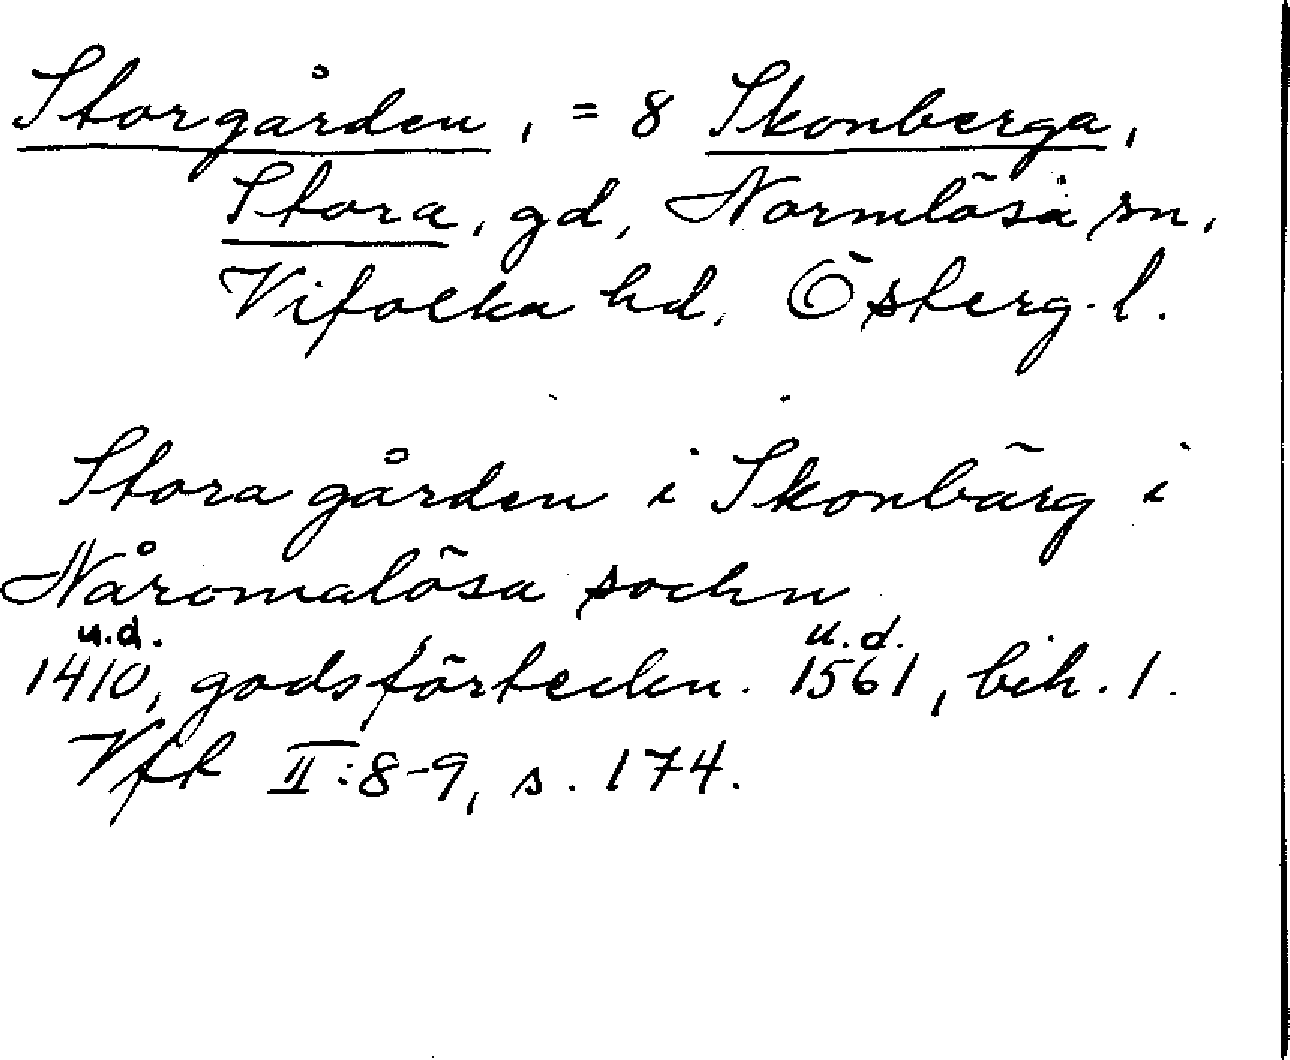 Storgården, = 8 Skonberga,
Stora, gd, Normlösa sn,
Vifolka hd, Österg. l.
Stora gården i Skonbärg i
Nåromalösa sochn
u.d. u.d.
1410, godsförteckn. 1561, bih. 1.
Vfk II:8-9, s. 174.